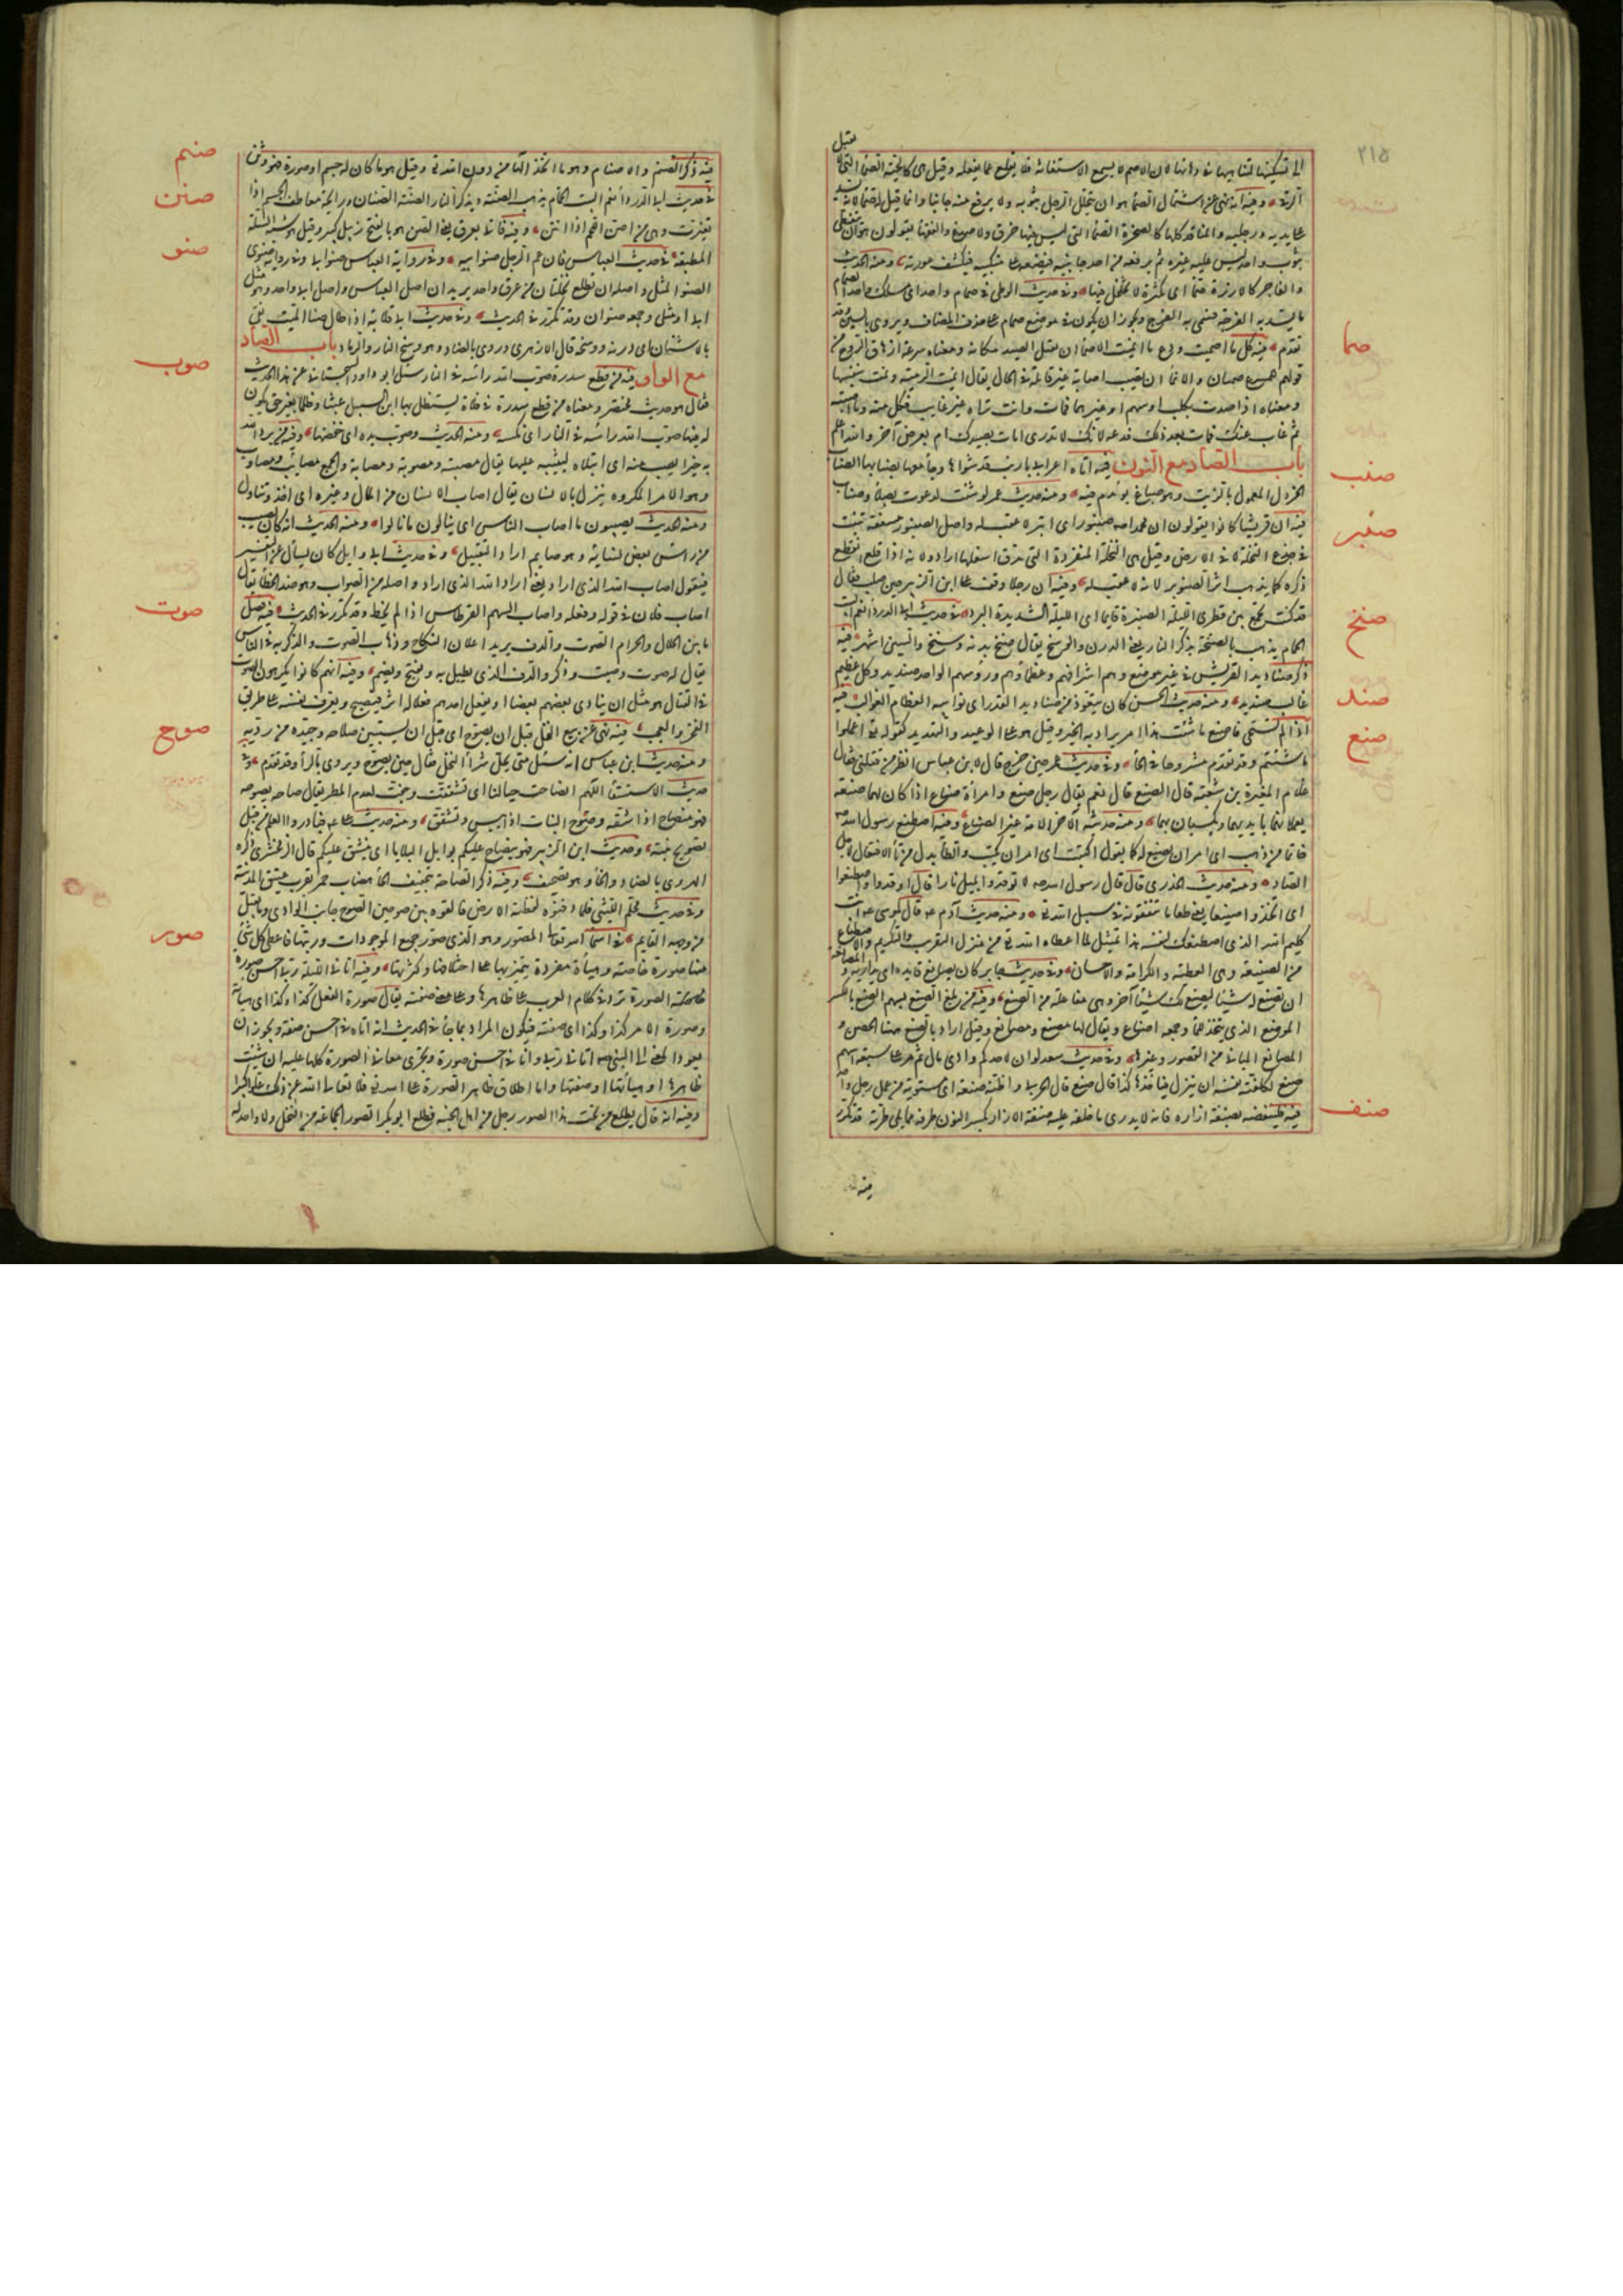 ٢١٥
آلرتد وفيه انه نهى عن اشتمال الصماء هو ان يتجلل الرجل بثوبه ولا يرفع منه جانبا وانما قيل لها صماء لانه يسد
على يديه ورجليه والمنافذ كلها كالصخرة الصماء التي ليس فيها خرق ولا صدع والفقهاء يقولون هو ان يتغطى
بثوب واحد ليس عليه غيره ثم يرفعه من احد جانبيه فيضعه على منكبه فيكشف عورته ومنه الحديث
والفاجر كالارزة صماء اي مكتنزة لا تخلخل فيها وفي حديث الوطئ في صمام واحد اي مسلك واحد الصمام
ما يسد به الفرجة فسمي به الفرج ويجوز ان يكون في موضع صمام على حذف المضاف ويروى بالسين وقد
صما
تقدم فيه كل ما اصميت ودع ما انميت الاصماء ان يقتل الصيد مكانه ومعناه سرعة ازهاق الروح من
قولهم للمسرع صميان والانماء ان تصيب اصابة غير قاتلة في الحال يقال انميت الرمية ونمت بنفسها
ومعناه اذا صدت بكلب او سهم او غيرهما فمات وانت تراه غير غائب فكل منه وما اصبته
ثم غاب عنك فمات بعد ذلك فدعه لانك لا تدري امات بصيدك ام بعرض آخر والله اعلم
صنب
باب الصاد مع النون فيه اتاه اعرابي بارنب قد شواها وجاء معها بصنابها الصناب
الخردل المعمول بالزيت وهو صباغ يؤتدم به ومنه حديث عمر لو شئت لدعوت بصلاء وصناب
صنبر
فيه ان قريشا كانوا يقولون ان محمدا صنبور اي ابتر لا عقب له واصل الصنبور سعفة تنبت
في جذع النخلة لا في الارض وقيل هي النخلة المنفردة التي يدق اسفلها اراد وانه اذا قلع انقطع
ذكره كما يذهب اثر الصنبور لانه لا عقب له وفيه ان رجلا وقف على ابن الزبير حين صلب فقال
صنخ
قد كنت تجمع بين قطري الليلة الصنبرة قائما اي الليلة الشديدة البرد في حديث ابي الدرداء نعم البيت
الحمام يذهب بالصنخة يذكر النار يعني الدرن والوسخ يقال صنخ بدنه وسنخ والسين اشهر فيه
صند
ذكر صناديد القريش في غير موضع وهم اشرافهم وعظماؤهم ورؤسهم الواحد صنديد وكل عظيم
غالب صنديد ومنه حديث الحسن كان يتعوذ من صناديد القدر اي نوائبه العظام الغوالب فيه
صنع
اذا لم تستحي فاصنع ما شئت هذا امر يراد به الخبر وقيل هو على الوعيد والتهديد كقوله تع اعملوا
ما شئتم وقد تقدم مشروحا في الحاء وفي حديث عمر حين جرح قال لابن عباس انظر من قتلني فقال
غلام المغيرة بن شعبة قال الصنع قال نعم يقال رجل صنع وامرأة صناع اذا كان لهما صنعة
يعملانها بايديهما ويكسبان بها ومنه حديثه الآخر الامة غير الصناع وفيه اصطنع رسول الله صم
خاتما من ذهب اي امر ان يصنع له كما يقول اكتتب اي امر ان يكتب والطاء بدل من تاء الافتعال لاجل
الصاد ومنه حديث الخدري قال قال رسول الله صم لا توقدوا بليل نارا قال اوقدوا واصطنعوا
اي اتخذوا صنيعا يعني طعاما تنفقونه في سبيل الله تع ومنه حديث آدم عم قال لموسى عم انت
كليم الله الذي اصطنعك لنفسه هذا تمثيل لما اعطاه الله تع من منزل التقريب والتكريم والاصطناع
من الصنيعة وهي العطية والكرامة والاحسان وفي حديث جابر كان يصانع قائده اي يداريه والمصانعة
ان تصنع له شيئا ليصنع لك شيئا آخر وهي مفاعلة من الصنع وفيه من بلغ الصنع بسهم الصنع بالكسر
الموضع الذي يتخذ للماء وجمعه اصناع ويقال لها مصنع ومصانع وقيل اراد بالصنع ههنا الحصن و
المصانع المباني من القصور وغيرها وفي حديث سعد لو ان لاحدكم وادي مال ثم مر على سبعة اسهم
صنع لكلفته نفسه ان ينزل فيأخذها كذا قال صنع قال الحربي واظنه صيغة اي مستوية من عمل رجل واحد
صنف
فيه فلينفضه بصنفة ازاره فانه لا يدري ما خلفه عليه صنفة الازار بكسر النون طرفه مما يلي طرته قد تكرر
فيه
صنم
فيه ذكر الصنم والاصنام وهو ما اتخذ الها من دون الله تع وقيل هو ما كان له جسم او صورة فهو وثن
صنن
في حديث ابي الدرداء نعم البيت الحمام يذهب الصنة ويذكر النار الصنة الصنان ورائحة معاطن الجسم اذا
تغيرت وهي من اصن اللحم اذا انتن وفيه فاتي بعرق يعني الصن هو بالفتح زبيل كبير وقيل هو شبه السلة
صنو
المطبقة في حديث العباس فان عم الرجل صنو ابيه وفي رواية العباس صنو ابي وفي رواية صنوي
الصنو المثل واصله ان تطلع نخلتان من عرق واحد يريد ان اصل العباس واصل ابي واحد وهو مثل
ابي او مثلي وجمعه صنوان وقد تكرر في الحديث وفي حديث ابي قلابة اذا طال صناء الميت نقي
بالاشنان اي درنه ووسخه قال الازهري وروي بالضاد وهو وسخ النار والرماد باب الصاد
صوب
مع الواو فيه من قطع سدرة صوب الله رأسه في النار سئل ابو داود السجستاني عن هذا الحديث
فقال هو حديث مختصر ومعناه من قطع سدرة في فلاة يستظل بها ابن السبيل عبثا وظلما بغير حق يكون
له فيها صوب الله رأسه في النار اي نكسه ومنه الحديث وصوب يده اي خفضها وفيه من يرد الله
به خيرا يصب منه اي ابتلاه ليثيبه عليها يقال مصيبة ومصوبة ومصابة والجمع مصائب ومصاوب
وهو الامر المكروه ينزل بالانسان يقال اصاب الانسان من المال وغيره اي اخذ وتناول
ومنه الحديث يصيبون ما اصاب الناس اي ينالون ما نالوا ومنه الحديث انه كان يصيب
من رأس بعض نسائه وهو صايم اراد التقبيل وفي حديث ابي وايل كان يسأل عن التفسير
فيقول اصاب الله الذي اراد يعني اراد الله الذي اراد واصله من الصواب وهو ضد الخطأ يقال
صوت
اصاب فلان في قوله وفعله واصاب السهم القرطاس اذا لم يخط وقد تكرر في الحديث فيه فصل
ما بين الحلال والحرام الصوت والدف يريد اعلان النكاح وذهاب الصوت والذكر به في الناس
يقال له صوت وصيت وذكر والدف الذي يطبل به ويفتح ويضم وفيه انهم كانوا يكرهون الصوت
في القتال هو مثل ان ينادي بعضهم بعضا او يفعل احدهم فعلا له اثر فيصيح ويعرف نفسه على طريق
صوح
الفخر والعجب فيه نهى عن بيع النخل قبل ان يصوح اي قبل ان يستبين صلاحه وجيده من رديه
ومنه حديث ابن عباس انه سئل متى يحل شراء النخل فقال حين يصوح ويروى بالراء وقد تقدم وفي
حديث الاستسقاء اللهم انصاحت جبالنا اي تشققت وجفت لعدم المطر يقال صاحه يصوحه
فهو منصاح اذا شقه وصوح النبات اذا يبس وتشقق ومنه حديث علي عم فبادروا العلم من قبل
تصويح نبته وحديث ابن الزبير فهو ينصاح عليكم بوابل البلايا اي ينشق عليكم قال الزمخشري ذكره
الهروي بالضاد والخاء وهو تصحيف وفيه ذكر الصاحة بتخفيف الحاء هضاب حمر بقرب عقيق المدينة
وفي حديث محلم الليثي فلما دفنوه لفظته الارض فالقوه بين صوحين الصوح جانب الوادي وما يقبل
صور
من وجهه القايم في اسماء الله تعالى المصور وهو الذي صور جميع الموجودات ورتبها فاعطى كل شيء
منها صورة خاصة وهيئة مفردة يتميز بها على اختلافها وكثرتها وفيه اتاني الليلة ربي في احسن صورة
الصورة ترد في كلام العرب على ظاهرها وعلى معنى صفته يقال صورة الفعل كذا وكذا اي هيأته
وصورة الامر كذا وكذا اي صفته فيكون المراد بما جاء في الحديث انه اتاه في احسن صفة ويجوز ان
يعود المعنى الى النبي صم اتاني ربي وانا في احسن صورة وتجري معاني الصورة كلها عليه ان شئت
ظاهرها او هيأتها او صفتها واما اطلاق ظاهر الصورة على الله تع فلا تعالى الله عن ذلك علوا كبيرا
وفيه انه قال يطلع من تحت هذا الصور رجل من اهل الجنة فطلع ابو بكر الصور الجماعة من النخل ولا واحد له